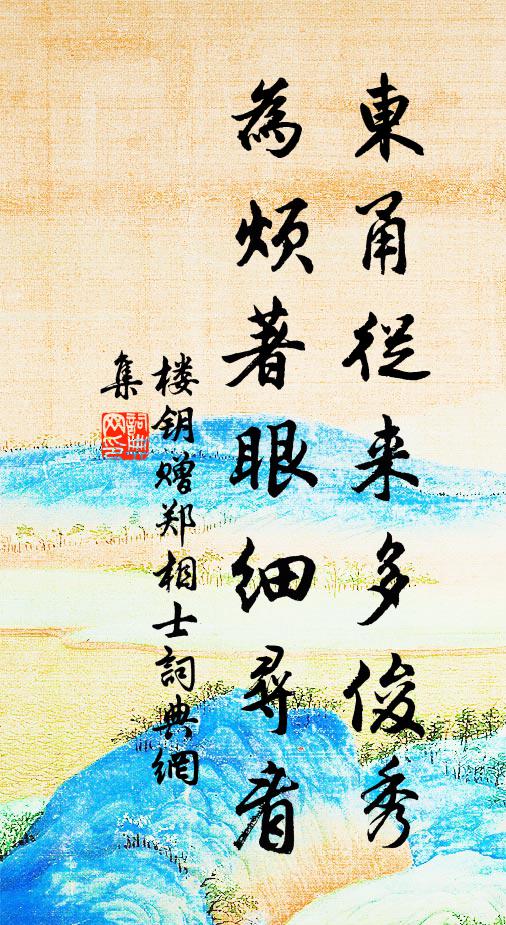 東甬從来多俊秀
為煩著眼細尋看
楼钥赠郑相士詞典網
集